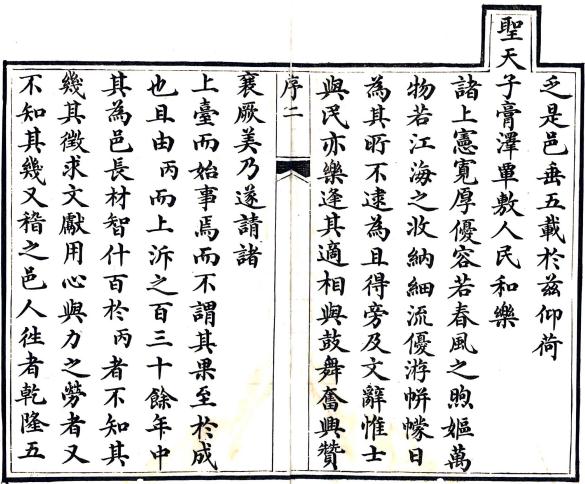 乏是邑垂五載於茲仰荷
聖天子膏澤覃敷人民和樂
諸上憲寛厚優容若春風之煦嫗萬
物若江海之收納細流優游帡幪日
為其所不逮為且得旁及文辭惟士
與民亦樂逢其適相與鼓舞奮興贊
序二
襄厥美乃遂請諸
上臺而始事焉而不謂其果至於成
也且由丙而上泝之百三十餘年中
其為邑長材智什百於丙者不知其
幾其徵求文獻用心與力之勞者又
不知其幾又稽之邑人徃者乾隆五